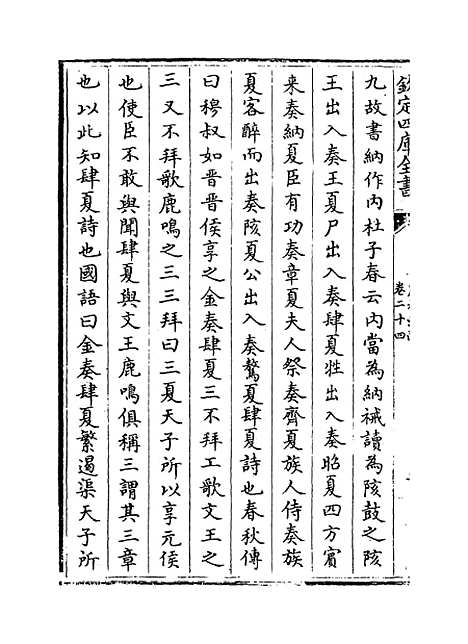 欽定四庫全書
卷二十四
九故書納作內杜子春云內當為納祴讀為陔鼓之陔
王出入奏王夏尸出入奏肆夏牲出入奏昭夏四方賓
来奏納夏臣有功奏章夏夫人祭奏齊夏族人侍奏族
夏客醉而出奏陔夏公出入奏驁夏肆夏詩也春秋傳
曰穆叔如晉晉侯享之金奏肆夏三不拜工歌文王之
三又不拜歌鹿鳴之三三拜曰三夏天子所以享元侯
也使臣不敢與聞肆夏與文王鹿鳴俱稱三謂其三章
也以此知肆夏詩也國語曰金奏肆夏繁遏渠天子所